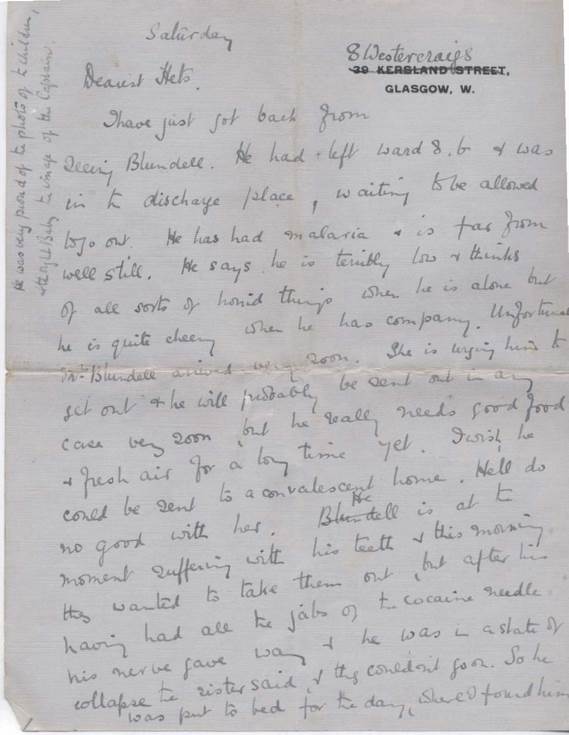 Saturday
8 Westercraigs
39 KERSLAND STREET,
GLASGOW, W.
Dearest Hets.
I have just got back from
seeing Blundell. He had left ward 8.b & was
in the discharge place, waiting to be allowed
to go out. He has had malaria & is far from
well still. He says he is terribly low & thinks
of all sorts of horrid things when he is alone but
he is quite cheery when he has company. Unfortunat
Mrs Blundell arrived very soon. She is urging him to
get out & he will probably be sent out in any
case very soon but he really needs good food
& fresh air for a long time yet. I wish he
could be sent to a convalescent home. He'll do
no good with her. Blundell He is at the
moment suffering with his teeth & this morning
they wanted to take them out, but after his
having had all the jabs of the cocaine needle
his nerve gave way & he was in a state of
collapse the sister said, & they couldn't go on. So he
was put to bed for the day, where I found him
He was very proud of the photo of the children,
& thought Baby the image of the Captain.